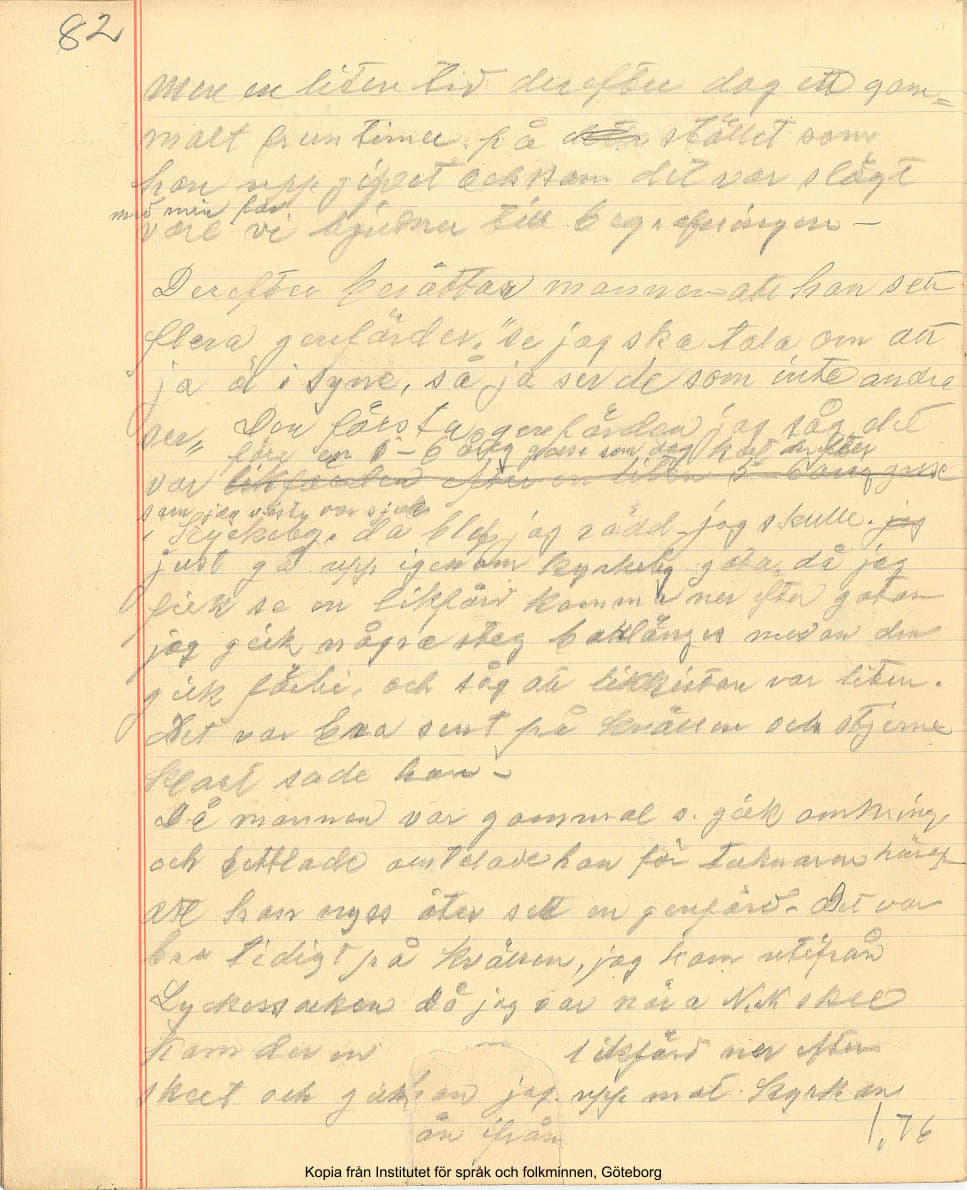 82
men en liten tid derefter dog ett gam=
malt fruntimer på stället som
han uppgifvet och som det var slägt
med min far
vare vi bjudner till begrafningen –
Derefter berättar mannen att han sett
flera genfärder, "se jag ska tala om att
ja ä i syne, så ja ser de som inte andra
ser" Den första genfärden jag såg det
före en 5–6 årig gosse som dog kort derefter
var likfärden efter en liten 5–6 årig gosse
som jag visste var sjuk
i Kyrkeby. då blef jag rädd. jag skulle jag
just gå upp igenom kyrkeby gata, då jag
fick se en likfärd komma ner efter gatan
jag gick några steg baklänges medan den
gick förbi, och såg att likkistan var liten.
Det var bra sent på kvällen och stjerne
klart sade han –
Då mannen var gammal o. gick omkring
och bettlade omtalade han för tecknaren härof
att han nyss åter sett en genfärd. Det var
bra tidigt på kvällen, jag kom utifrån
Lyckossocken Då jag var nära N.N skee
kom der en likfärd ner efter
skeet och gick han jag upp mot kyrkan
än ifrån
1,76
Kopia från Institutet för språk och folkminnen, Göteborg